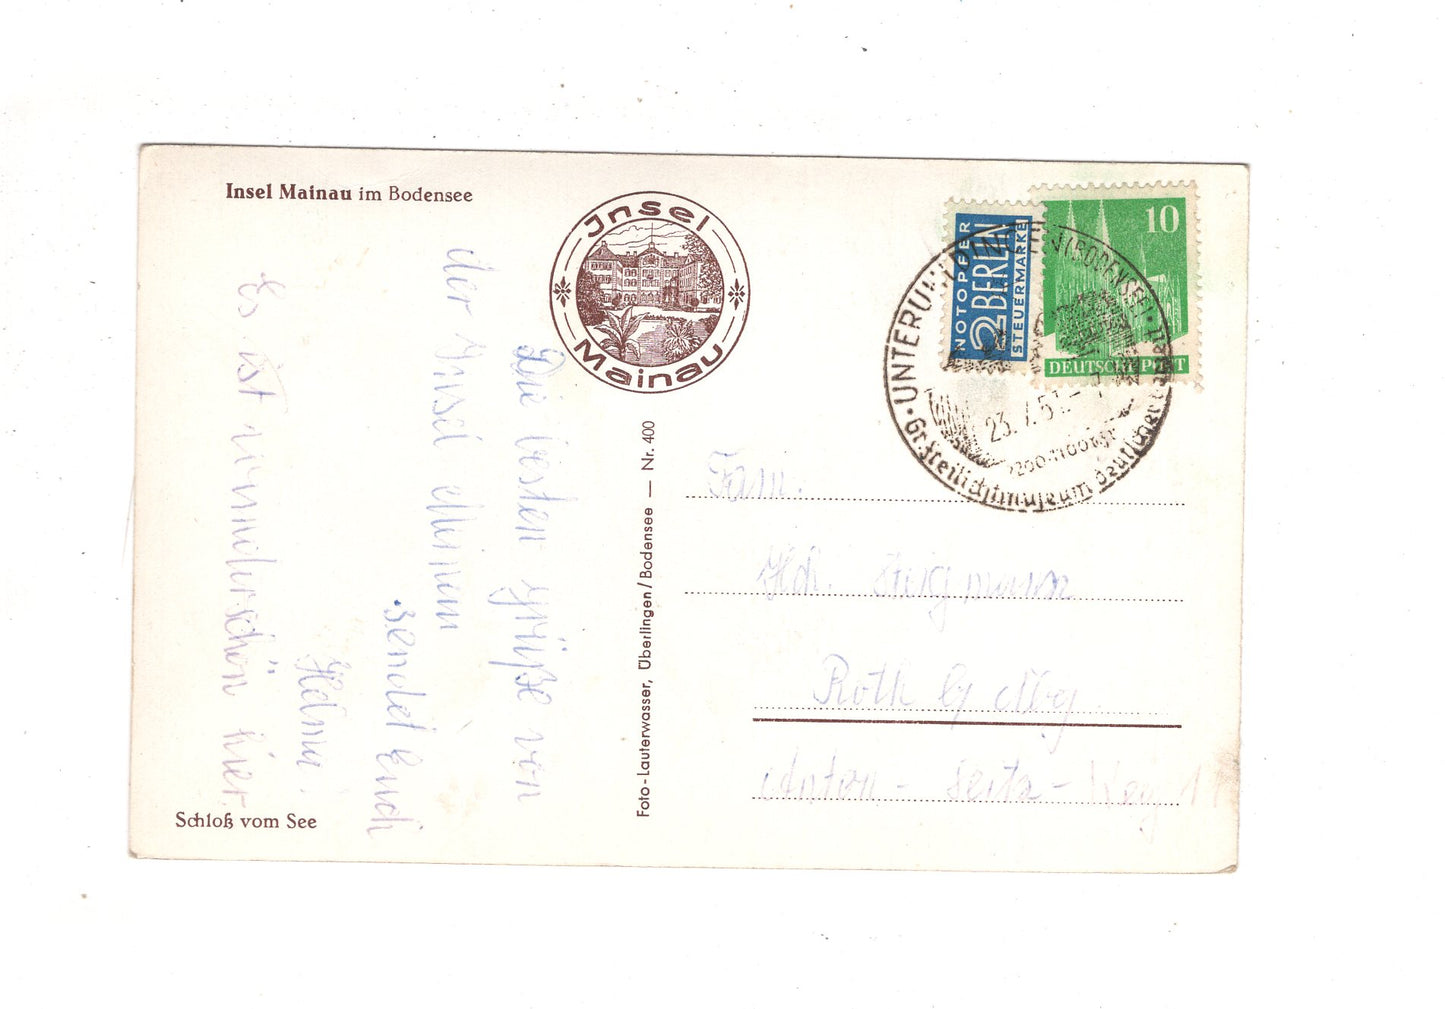 Insel Mainau im Bodensee
Jnsel
Mainau
Die besten Grüße von
der Insel Mainau
sendet Euch
Helmi.
Es ist wunderschön hier.
Schloß vom See
Foto-Lauterwasser, Überlingen/Bodensee — Nr. 400
NOTOPFER
2 BERLIN
STEUERMARKE
10
DEUTSCHE POST
UNTERUHLDINGEN (BODENSEE)
23.7.51
Gr. Freilichtmuseum deutscher
Fam.
Hch. Steigmann
Roth b/ Nbg
Anton-Seitz-Weg 1